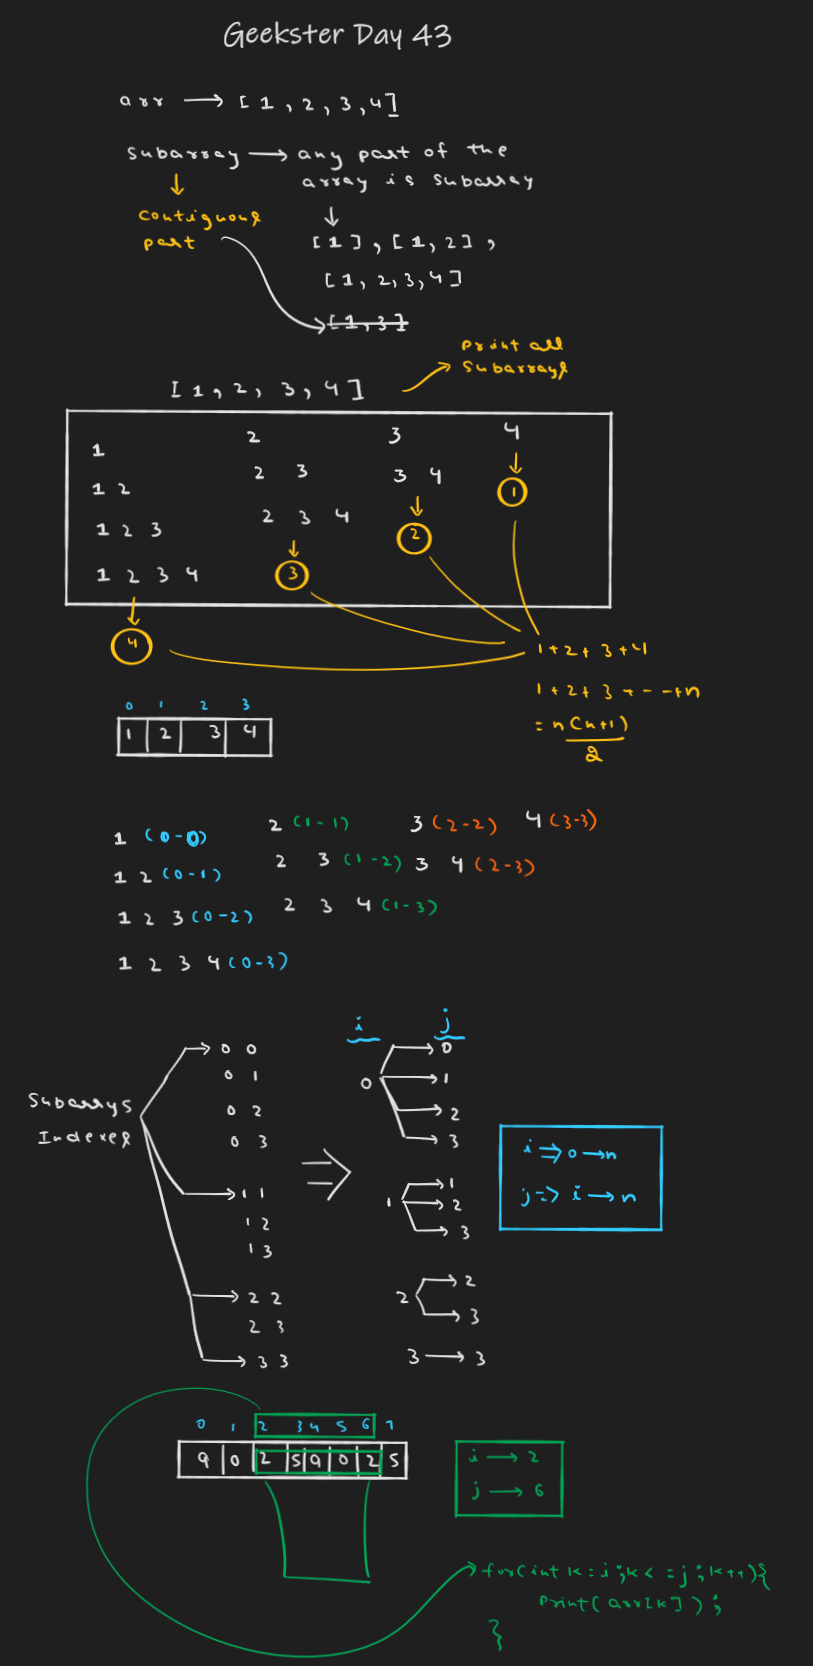 Geekster Day 43
arr → [ 1 , 2 , 3 , 4 ]
Subarray → any part of the
array is subarray
Contiguous
part
[ 1 ] , [ 1 , 2 ] ,
[ 1 , 2 , 3 , 4 ]
[ 1 , 3 ]
Print all
Subarrays
[ 1 , 2 , 3 , 4 ]
1
1 2
1 2 3
1 2 3 4
4
2
2 3
2 3 4
3
3
3 4
2
4
1
1 + 2 + 3 + 4
1 + 2 + 3 + - - + n
= n(n+1)
2
0 1 2 3
1 2 3 4
1 (0-0)
1 2 (0-1)
1 2 3 (0-2)
1 2 3 4 (0-3)
2 (1-1)
2 3 (1-2)
2 3 4 (1-3)
3 (2-2)
3 4 (2-3)
4 (3-3)
Subarrys
Indexes
0 0
0 1
0 2
0 3
1 1
1 2
1 3
2 2
2 3
3 3
⇒
i j
0 → 0
→ 1
→ 2
→ 3
1 → 1
→ 2
→ 3
2 → 2
→ 3
3 → 3
i ⇒ 0 → n
j => i → n
0 1 2 3 4 5 6 7
9 0 2 5 9 0 2 5
i → 2
j → 6
for(int k = i ; k < = j ; k++){
Print( arr[k] ) ;
}